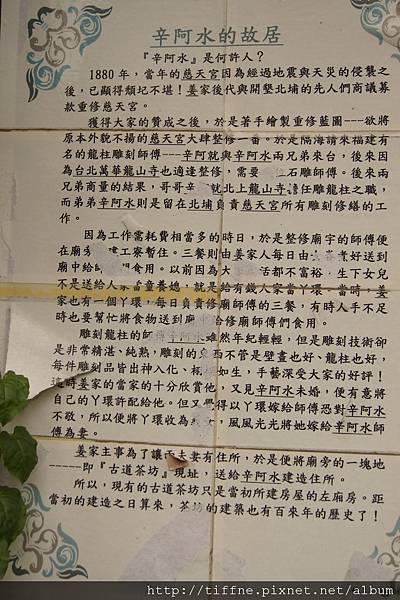 辛阿水的故居
『辛阿水』是何許人？
1880年，當年的慈天宮因為經過地震與天災的侵襲之
後，已顯得頹圮不堪！姜家後代與開墾北埔的先人們商議募
款重修慈天宮。
獲得大家的贊成之後，於是著手繪製重修藍圖---欲將
原本外貌不揚的慈天宮大肆整修一番。於是隔海請來福建有
名的龍柱雕刻師傅---辛阿就與辛阿水兩兄弟來台，後來因
為台北萬華龍山寺也適逢整修，需要 石雕師傅。後來兩
兄弟商量的結果，哥哥辛 就北上龍山寺擔任雕龍柱之職，
而弟弟辛阿水則是留在北埔負責慈天宮所有雕刻修繕的工
作。
因為工作需耗費相當多的時日，於是整修廟宇的師傅便
在廟旁 工寮暫住。三餐則由姜家人每日由 煮好送到
廟中給師 們食用。以前因為大 活都不富裕 生下女兒
不是送給人家當童養媳，就是給有錢人家當丫環。當時，姜
家也有一個丫環，每日負責修廟師傅的三餐，有時人手不足
時也要幫忙將食物送到廟中給修廟師傅們食用。
雕刻龍柱的師傅辛阿水雖然年紀輕輕，但是雕刻技術卻
是非常精湛、純熟，雕刻的東西不管是壁畫也好、龍柱也好，
每件雕刻品皆出神入化、栩栩如生，手藝深受大家的好評！
這時姜家的當家的十分欣賞他，又見辛阿水未婚，便有意將
自己的丫環許配給他。但又覺得以丫環嫁給師傅恐對辛阿水
不敬，所以便將丫環收為 女，風風光光將她嫁給辛阿水師
傅為妻。
姜家主事為了讓 夫妻有住所，於是便將廟旁的一塊地
-----即『古道茶坊』現址，送給辛阿水建造住所。
所以，現有的古道茶坊只是當初所建房屋的左廂房。距
當初的建造之日算來，茶坊的建築也有百來年的歷史了！
http://tiffne.pixnet.net/album